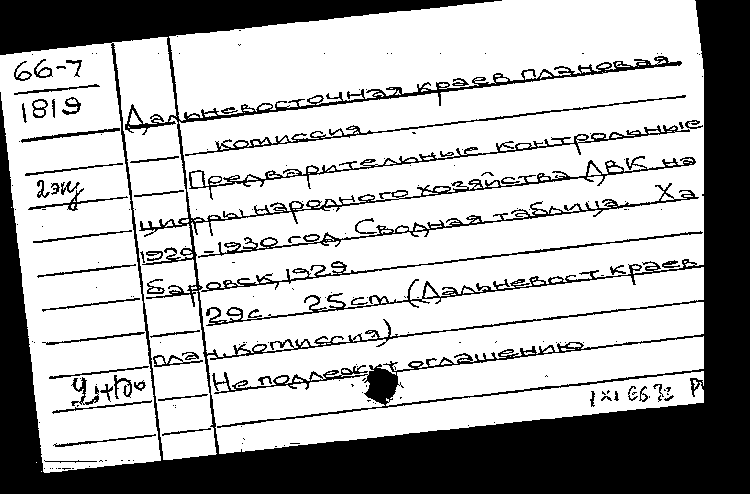 66-7
1819
Дальневосточная краев плановая
комиссия.
2 экз
Предварительные контрольные
цифры народного хозяйства ДВК на
1929-1930 год. Сводная таблица. Ха
баровск, 1929.
29с. 25cm. (Дальневост. краев
план. комиссия)
Не подлежит оглашению
1 XI 66.